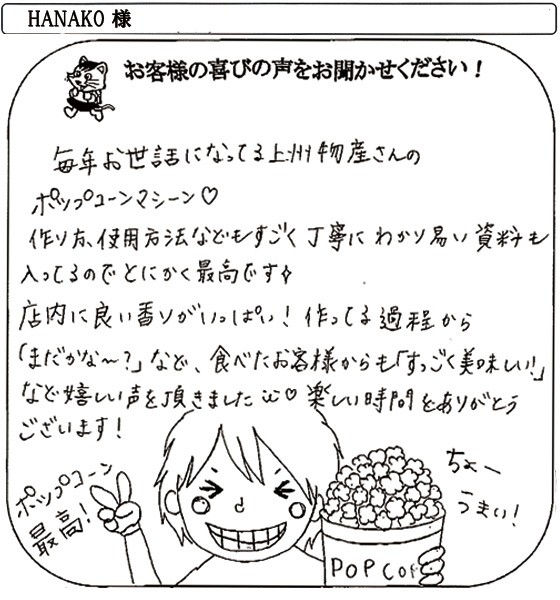 HANAKO 様
お客様の喜びの声をお聞かせください！
毎年お世話になってる上州物産さんの
ポップコーンマシーン♡
作り方、使用方法などもすごく丁寧にわかり易い資料も
入ってるのでとにかく最高です♪
店内に良い香りがいっぱい！作ってる過程から
「まだかな〜？」など、食べたお客様からも「すっごく美味しい！」
など嬉しい声を頂きました♡楽しい時間をありがとう
ございます！
ポップコーン
最高！
ちょー
うまい！
POP COR